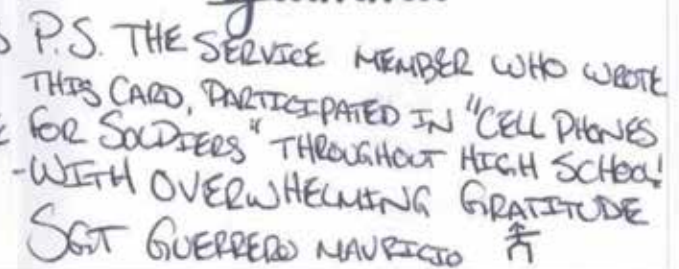 P.S. THE SERVICE MEMBER WHO WROTE
THIS CARD, PARTICIPATED IN "CELL PHONES
FOR SOLDIERS" THROUGHOUT HIGH SCHOOL!
-WITH OVERWHELMING GRATITUDE
SGT GUERRERO MAURICIO